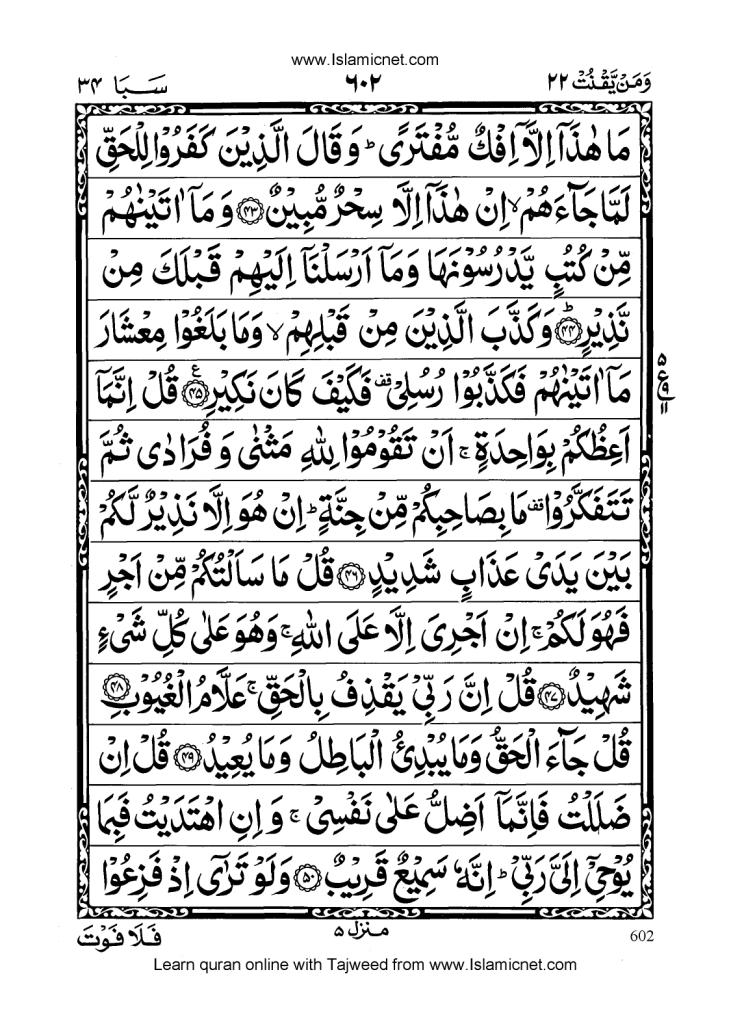 www.Islamicnet.com
وَمَنۡ يَّقۡنُتۡ ٢٢
٦٠٢
سَبَا ٣٤
مَا هٰذَاۤ اِلَّاۤ اِفۡكٌ مُّفۡتَرًى ؕ وَقَالَ الَّذِيۡنَ كَفَرُوۡا لِلۡحَقِّ
لَمَّا جَآءَهُمۡ ۙ اِنۡ هٰذَاۤ اِلَّا سِحۡرٌ مُّبِيۡنٌ ﴿٤٣﴾ وَمَاۤ اٰتَيۡنٰهُمۡ
مِّنۡ كُتُبٍ يَّدۡرُسُوۡنَهَا وَمَاۤ اَرۡسَلۡنَاۤ اِلَيۡهِمۡ قَبۡلَكَ مِنۡ
نَّذِيۡرٍ ؕ ﴿٤٤﴾ وَكَذَّبَ الَّذِيۡنَ مِنۡ قَبۡلِهِمۡ ۙ وَمَا بَلَغُوۡا مِعۡشَارَ
مَاۤ اٰتَيۡنٰهُمۡ فَكَذَّبُوۡا رُسُلِىۡ ۚقف فَكَيۡفَ كَانَ نَكِيۡرِ ﴿٤٥﴾ ع قُلۡ اِنَّمَاۤ
٥ ع ٩ ١١
اَعِظُكُمۡ بِوَاحِدَةٍ ۚ اَنۡ تَقُوۡمُوۡا لِلّٰهِ مَثۡنٰى وَفُرَادٰى ثُمَّ
تَتَفَكَّرُوۡا قف مَا بِصَاحِبِكُمۡ مِّنۡ جِنَّةٍ ؕ اِنۡ هُوَ اِلَّا نَذِيۡرٌ لَّكُمۡ
بَيۡنَ يَدَىۡ عَذَابٍ شَدِيۡدٍ ﴿٤٦﴾ قُلۡ مَا سَاَلۡتُكُمۡ مِّنۡ اَجۡرٍ
فَهُوَ لَكُمۡ ؕ اِنۡ اَجۡرِىَ اِلَّا عَلَى اللّٰهِ ۚ وَهُوَ عَلٰى كُلِّ شَىۡءٍ
شَهِيۡدٌ ﴿٤٧﴾ قُلۡ اِنَّ رَبِّىۡ يَقۡذِفُ بِالۡحَقِّ ۚ عَلَّامُ الۡغُيُوۡبِ ﴿٤٨﴾
قُلۡ جَآءَ الۡحَقُّ وَمَا يُبۡدِئُ الۡبَاطِلُ وَمَا يُعِيۡدُ ﴿٤٩﴾ قُلۡ اِنۡ
ضَلَلۡتُ فَاِنَّمَاۤ اَضِلُّ عَلٰى نَفۡسِىۡ ۚ وَاِنِ اهۡتَدَيۡتُ فَبِمَا
يُوۡحِىۡۤ اِلَىَّ رَبِّىۡ ؕ اِنَّهٗ سَمِيۡعٌ قَرِيۡبٌ ﴿٥٠﴾ وَلَوۡ تَرٰٓى اِذۡ فَزِعُوۡا
فَلَا فَوۡتَ
منزل ٥
602
Learn quran online with Tajweed from www.Islamicnet.com